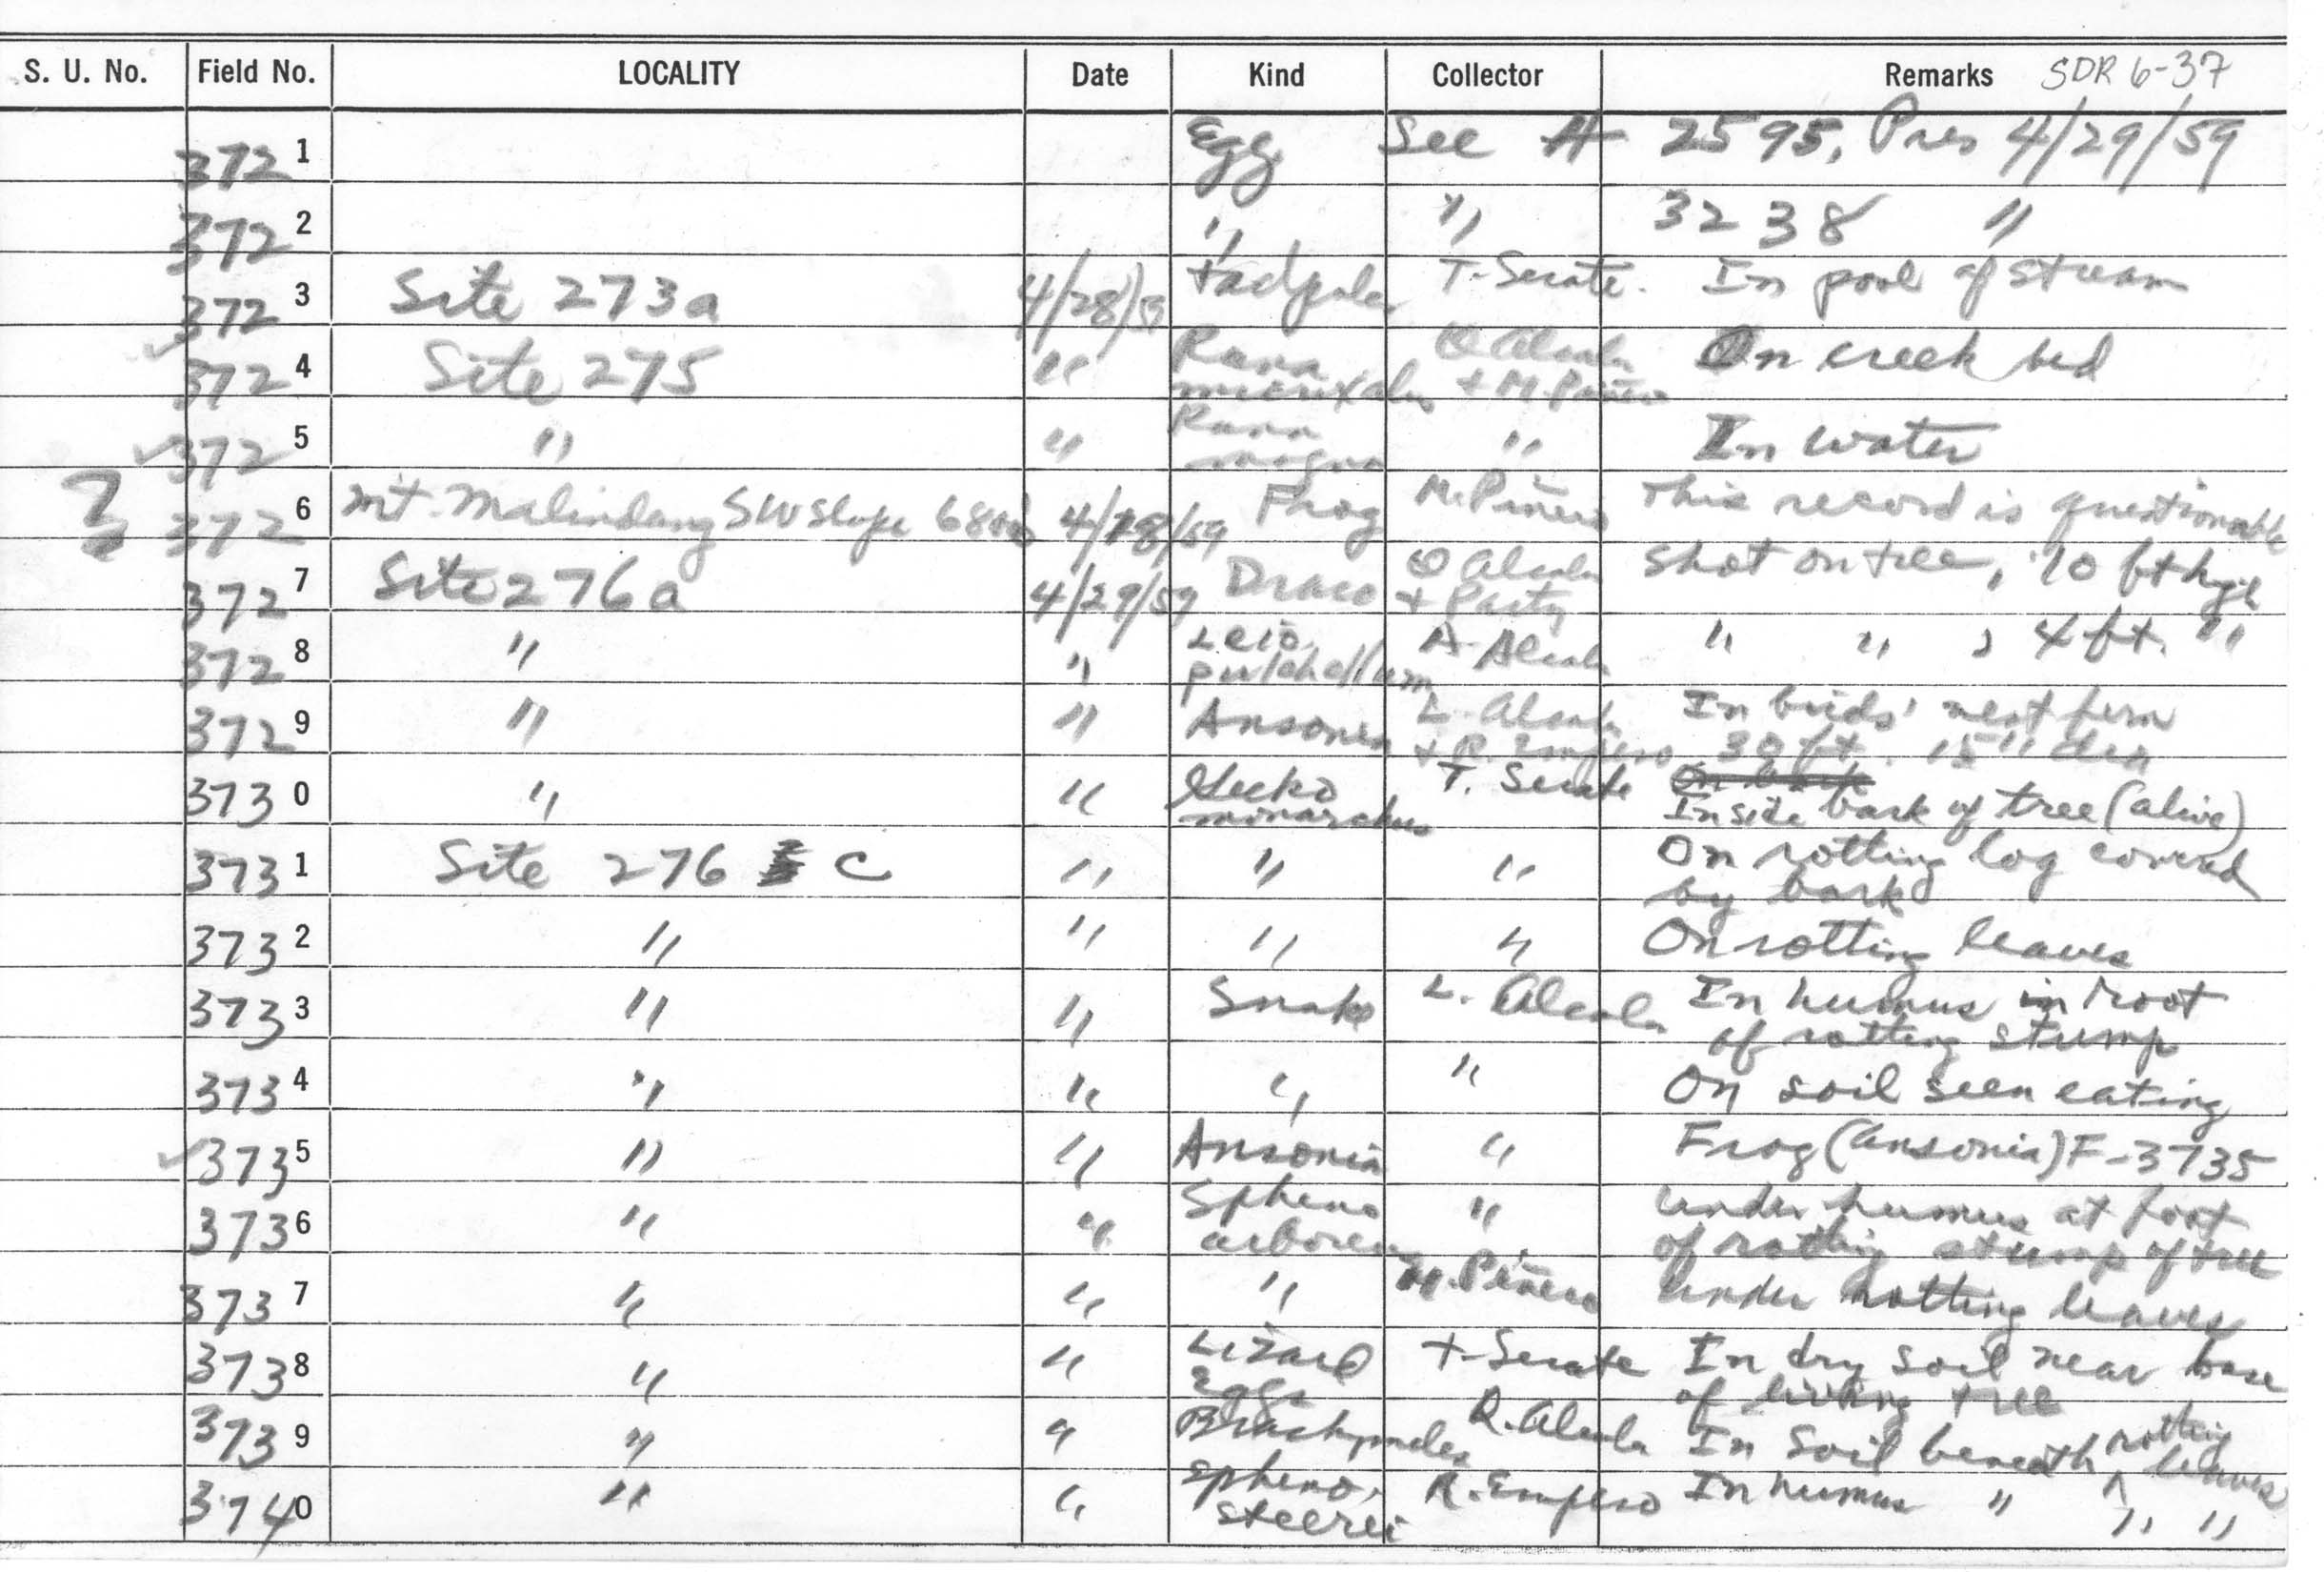 S. U. No. Field No. LOCALITY Date Kind Collector Remarks SDR 6-37
3721 Egg See A 2595, Pres 4/29/59
3722 " " 3238 "
3723 Site 273a 4/28/59 tadpoles T. Serate. In pool of stream
3724 Site 275 " Rana microxalus Q Alcala + M. Piñero On creek bed
3725 " " Rana magna " In water
? 3726 Mt. Malindang SW slope 6800 4/28/59 Frog M. Piñero This record is questionable
3727 Site 276a 4/29/59 Draco Q Alcala + Party Shot on tree, 10 ft high
3728 " " Leio. pulchellum A. Alcala " " , 4 ft. "
3729 " " Ansonia L. Alcala + R. Empeso In birds' nest fern 30 ft. 15" dia
3730 " " Gecko monarchus T. Serate On bark Inside bark of tree (alive)
3731 Site 276 c " " " On rotting log covered by bark
3732 " " " " On rotting leaves
3733 " " Snake L. Alcala In humus in root of rotting stump
3734 " " " " On soil seen eating
3735 " " Ansonia " Frog (Ansonia) F-3735
3736 " " Spheno arboreus " Under humus at foot of rotting stump of tree
3737 " " " M. Piñero Under rotting leaves
3738 " " Lizard Eggs T. Serate In dry soil near base of living tree
3739 " " Brachymeles R. Alcala In soil beneath rotting leaves
3740 " " Spheno. steerei R. Empeso In humus " " "